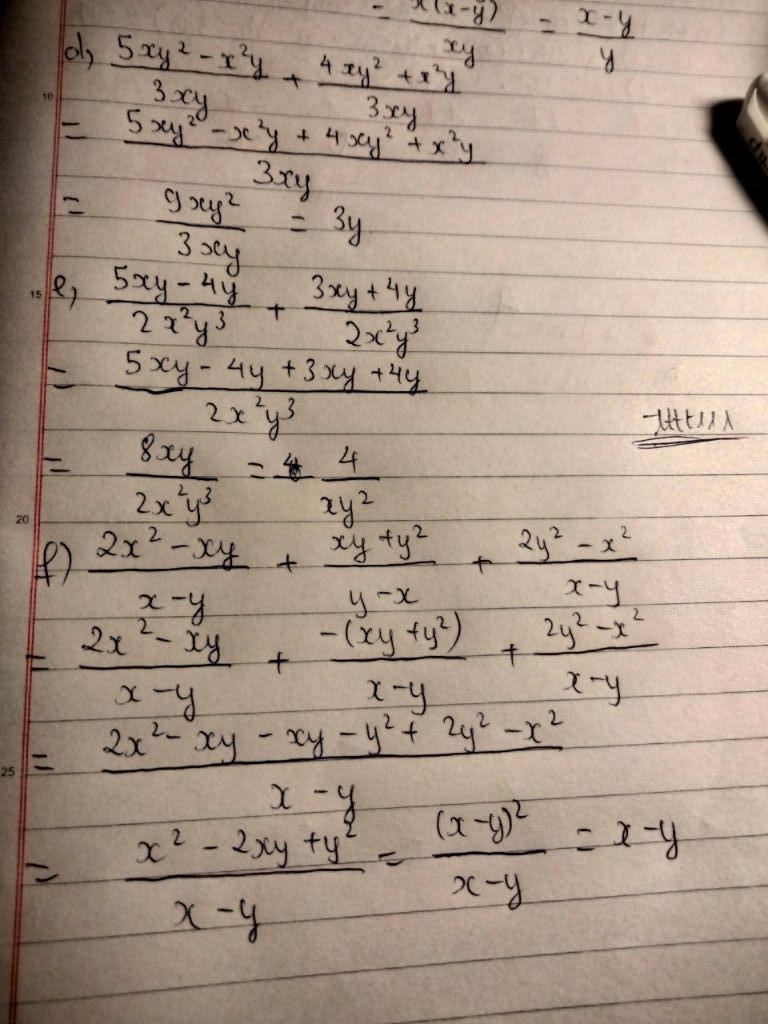 = x(x-y)/xy = (x-y)/y
d, (5xy² - x²y)/3xy + (4xy² + x²y)/3xy
10
= (5xy² - x²y + 4xy² + x²y)/3xy
= 9xy²/3xy = 3y
15
e, (5xy - 4y)/2x²y³ + (3xy + 4y)/2x²y³
= (5xy - 4y + 3xy + 4y)/2x²y³
= 8xy/2x²y³ = 4/xy²
20
f) (2x² - xy)/(x - y) + (xy + y²)/(y - x) + (2y² - x²)/(x - y)
= (2x² - xy)/(x - y) + -(xy + y²)/(x - y) + (2y² - x²)/(x - y)
= (2x² - xy - xy - y² + 2y² - x²)/(x - y)
25
= (x² - 2xy + y²)/(x - y) = (x - y)²/(x - y) = x - y